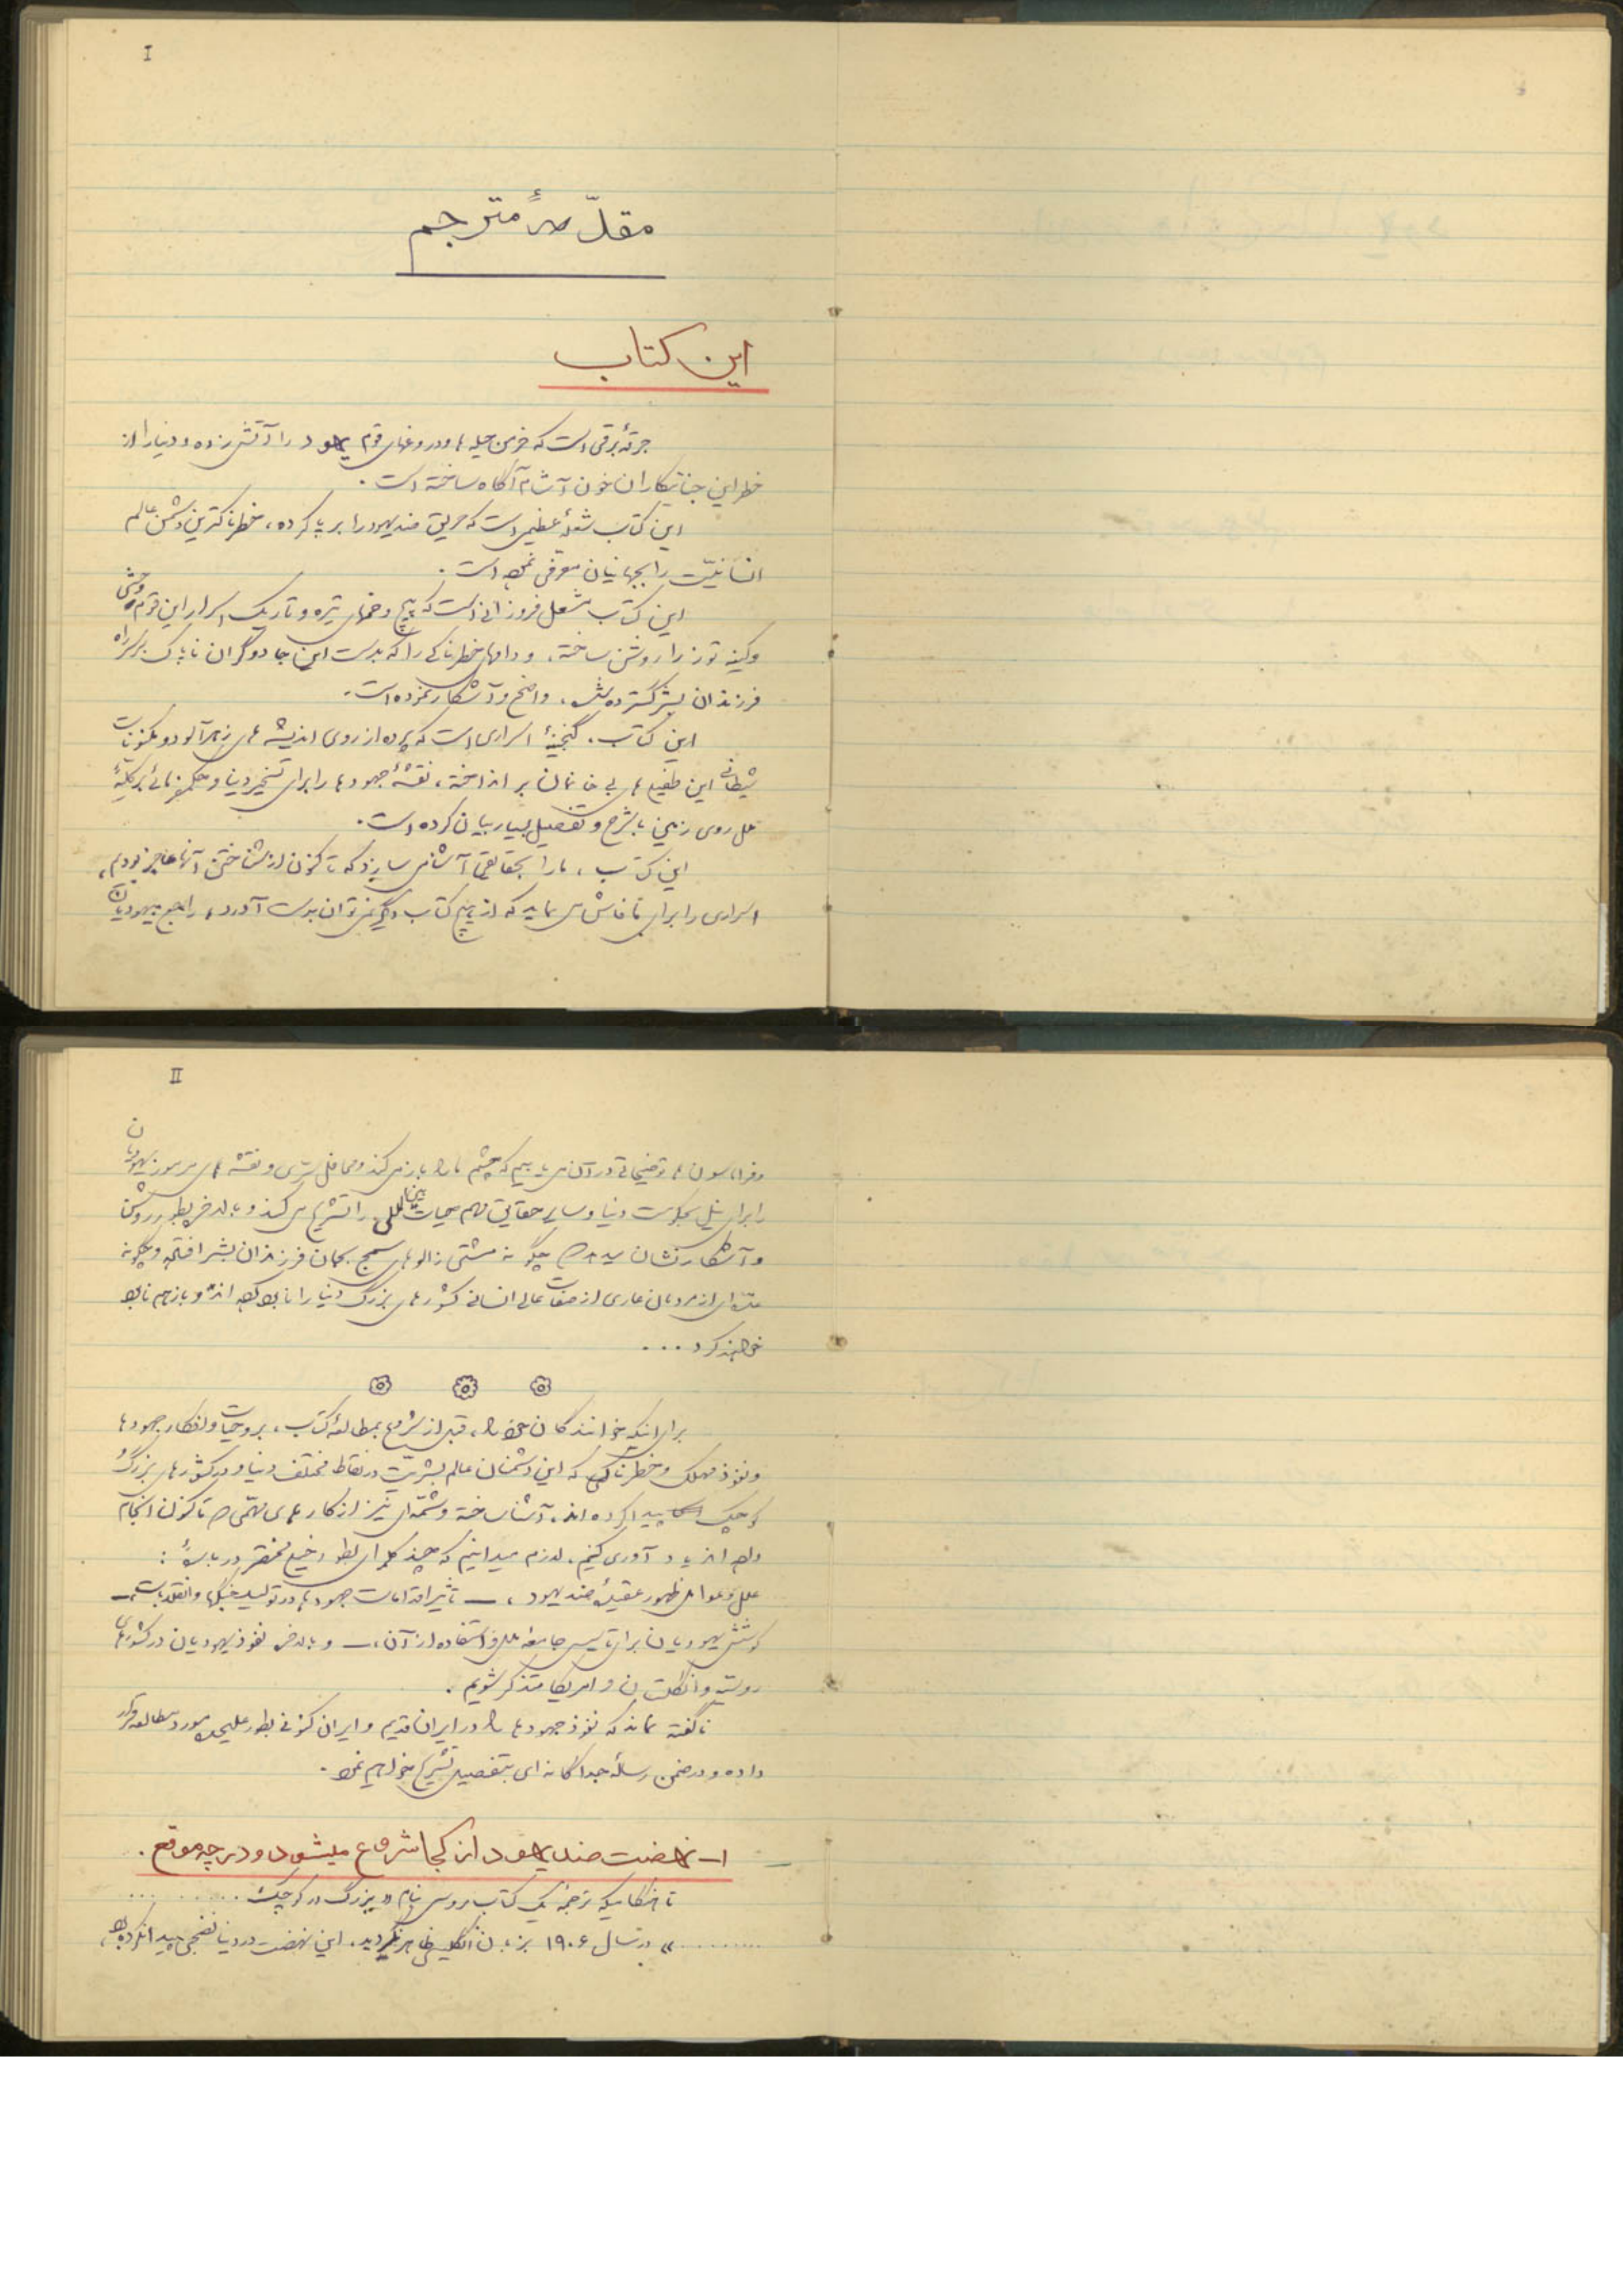 I
مقدّمهٔ مترجم
این کتاب
جرقهٔ برقی است که خرمن حیله ها و دروغهای قوم یهود را آتش زده و دنیا را از
خطر این جنایتکاران خون آشام آگاه ساخته است .
این کتاب شعلهٔ عظیمی است که حریق ضد یهود را بر پا کرده ، خطرناکترین دشمن عالم
انسانیّت را بجهانیان معرفی نموده است .
این کتاب مشعل فروزانی است که پیچ و خمهای تیره و تاریک اسرار این قوم وحشی
و کینه توز را روشن ساخته ، و دامهای خطرناکی را که بدست این جادوگران ناپاک بر سر راه
فرزندان بشر گسترده شده ، واضح و آشکار نموده است .
این کتاب ، گنجینهٔ اسراری است که پرده از روی اندیشه های زهرآلود و مکنونات
شیطانی این طفیلی های بی خانمان بر انداخته ، نقشهٔ جهودها را برای تسخیر دنیا و حکمفرمائی بر کلیهٔ
ملل روی زمین با شرح و تفصیل بسیار بیان کرده است .
این کتاب ، ما را بحقایقی آشنا می سازد که تا کنون از شناختن آنها عاجز بودیم ،
اسراری را برای ما فاش می نماید که از هیچ کتاب دیگر نمی توان بدست آورد ، راجع بیهودیان
II
و فراماسون ها توضیحاتی در آن می یابیم که چشم ما را باز می کند و محافل سرّی و نقشه های مرموز یهودیان
را برای نیل بحکومت دنیا و سایر حقایق مهم حیات بین المللی را تشریح می کند و بالاخره بطور روشن
و آشکار نشان میدهد چگونه مشتی زالوهای سمج بجان فرزندان بشر افتاده و چگونه
عده ای از مردمان عاری از صفات عالی انسانی کشورهای بزرگ دنیا را نابود کرده اند و باز هم نابود
خواهند کرد ...
برای اینکه خوانندگان خود را ، قبل از شروع بمطالعهٔ کتاب ، بروحیات و افکار جهودها
و نفوذ مهلک و خطرناکی که این دشمنان عالم بشریّت در نقاط مختلف دنیا و در کشورهای بزرگ و
کوچک پیدا کرده اند ، آشنا ساخته و شمّه ای نیز از کارهای مهمّی که تا کنون انجام
داده اند یاد آوری کنیم ، لازم میدانیم که چند کلمه ای بطور خیلی مختصر در بارهٔ :
علل و عوامل ظهور عقیدهٔ ضد یهود ، — تأثیر اقدامات جهودها در تولید جنگها و انقلابات ، —
کوشش یهودیان برای تأسیس جامعه ملل و استفاده از آن ، — و بالاخره نفوذ یهودیان در کشورهای
روسیه و انگلستان و امریکا متذکر شویم .
ناگفته نماند که نفوذ جهودها را در ایران قدیم و ایران کنونی بطور علیحده مورد مطالعه قرار
داده و در ضمن رسالهٔ جداگانه ای بتفصیل تشریح خواهیم نمود .
۱- نهضت ضد یهود از کجا شروع میشود و در چه موقع .
تا هنگامیکه ترجمهٔ یک کتاب روسی بنام « بزرگ در کوچک ..........
.......... » در سال ۱۹۰۶ بزبان انگلیسی ظاهر نگردید ، این نهضت در دنیا نضجی پیدا نکرده بود ،